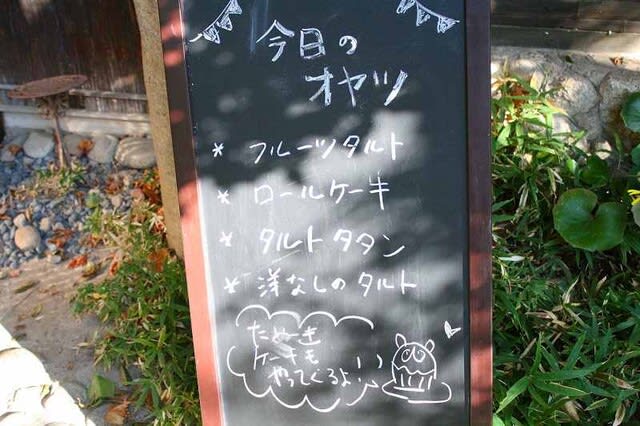 今日の
オヤツ
* フルーツタルト
* ロールケーキ
* タルトタタン
* 洋なしのタルト
たぬき
ケーキも
やってくるよ!